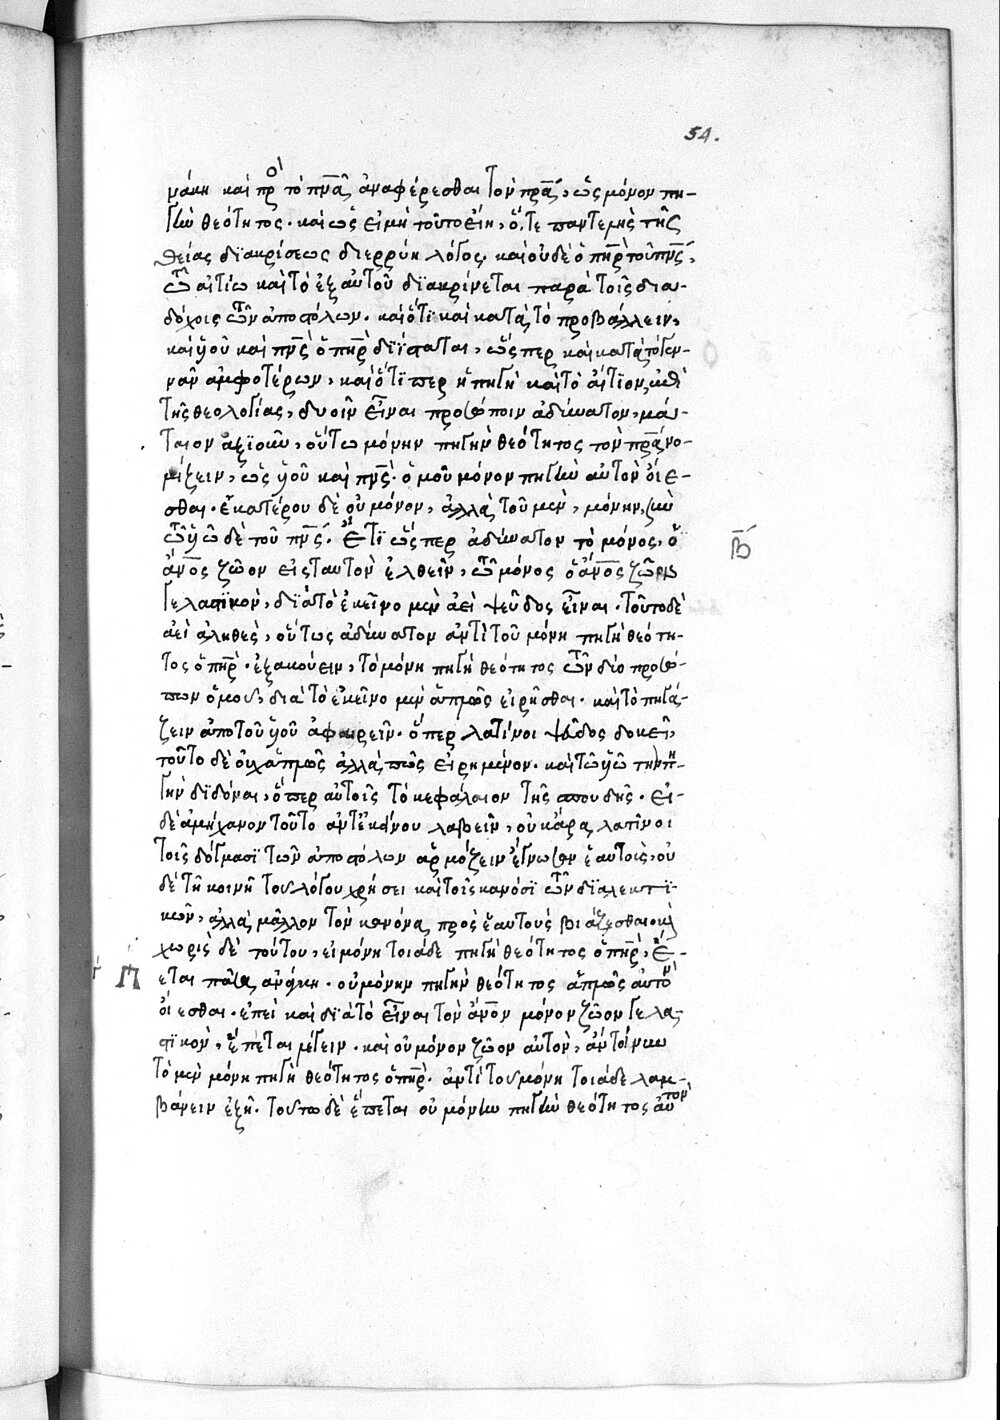 54.
νάκη καὶ πρὸ τὸ πν̅α ἀναφέρεσθαι τὸν πρ̅α, ὡς μόνον πη-
γὴν θεότητος. καὶ ὡς εἰ μὴ τοῦτο εἴη, ὅ, τε παντελὴς τῆς
θείας διακρίσεως διερρύη λόγος. καὶ οὐδὲ ὁ πη̅ρ τοῦ πν̅ς,
τῷ αἰτίῳ καὶ τὸ ἐξ αὐτοῦ διακρίνεται παρὰ τοῖς δια-
δόχοις τῶν ἀποστόλων. καὶ ὅτι καὶ κατὰ τὸ προβάλλειν,
καὶ υ̅οῦ καὶ πν̅ς ὁ πη̅ρ διΐσταται, ὥσπερ καὶ κατὰ τὸ γεν-
νᾶν ἀμφοτέρων, καὶ ὅτιπερ ἡ πηγὴ καὶ τὸ αἴτιον, ἐπὶ
τῆς θεολογίας, δυοῖν εἶναι προσώποιν ἀδύνατον, μά-
ταιον ἀξιοῦν, οὕτω μόνην πηγὴν θεότητος τὸν πρ̅α νο-
μίζειν, ὡς υ̅οῦ καὶ πν̅ς ὁμοῦ μόνον πηγὴν αὐτὸν οἴε-
σθαι. ἑκατέρου δὲ οὐ μόνον, ἀλλὰ τοῦ μὲν, μόνην, σὺν
τῷ υ̅ῷ δὲ τοῦ πν̅ς. Ἔτι ὥσπερ ἀδύνατον τὸ μόνος, ὁ
ἄν̅ος ζῶον εἰς ταυτὸν ἐλθεῖν, τῷ μόνος ὁ ἄν̅ος ζῶον
γελαστικὸν, διὰ τὸ ἐκεῖνο μὲν ἀεὶ ψεῦδος εἶναι. τοῦτο δὲ
ἀεὶ ἀληθὲς, οὕτως ἀδύνατον ἀντὶ τοῦ μόνη πηγὴ θεότη-
τος ὁ πη̅ρ. ἐξακούειν, τὸ μόνη πηγὴ θεότητος τῶν δύο προσώ-
πων ὁμοῦ, διὰ τὸ ἐκεῖνο μὲν ἁπλῶς εἰρῆσθαι. καὶ τὸ πηγά-
ζειν ἀπὸ τοῦ υ̅οῦ ἀφαιρεῖν. ὅπερ λατίνοι ψεῦδος δοκεῖ,
τοῦτο δὲ οὐχ ἁπλῶς ἀλλά πως εἰρημένον. καὶ τῷ υ̅ῷ τὴν πη-
γὴν διδόναι, ὅπερ αὐτοῖς τὸ κεφάλαιον τῆς σπουδῆς. εἰ
δὲ ἀμήχανον τοῦτο ἀντ' ἐκείνου λαβεῖν, οὐκ ἄρα λατῖνοι
τοῖς δόγμασι τῶν ἀποστόλων ἁρμόζειν ἔγνωσαν ἑαυτοὺς, οὐ
δὲ τῇ κοινῇ τοῦ λόγου χρήσει καὶ τοῖς κανόσι τῶν διαλεκτι-
κῶν, ἀλλὰ μᾶλλον τὸν κανόνα πρὸς ἑαυτοὺς βιάζεσθαι. καὶ
χωρὶς δὲ τούτου, εἰ μόνη τοιάδε πηγὴ θεότητος ὁ πη̅ρ, ἕ-
πεται πᾶσα ἀνάγκη. οὐ μόνην πηγὴν θεότητος ἁπλῶς αὐτὸν
οἴεσθαι. ἐπεὶ καὶ διὰ τὸ εἶναι τὸν ἄν̅ον μόνον ζῶον γελα-
στικὸν, ἕπεται λέγειν. καὶ οὐ μόνον ζῶον αὐτὸν, ἂν τοίνυν
τὸ μὲν μόνη πηγὴ θεότητος ὁ πη̅ρ. ἀντὶ τοῦ μόνη τοιάδε λαμ-
βάνειν ἐξῇ. τούτῳ δὲ ἕπεται οὐ μόνην πηγὴν θεότητος αὐτὸν
β̅
Π